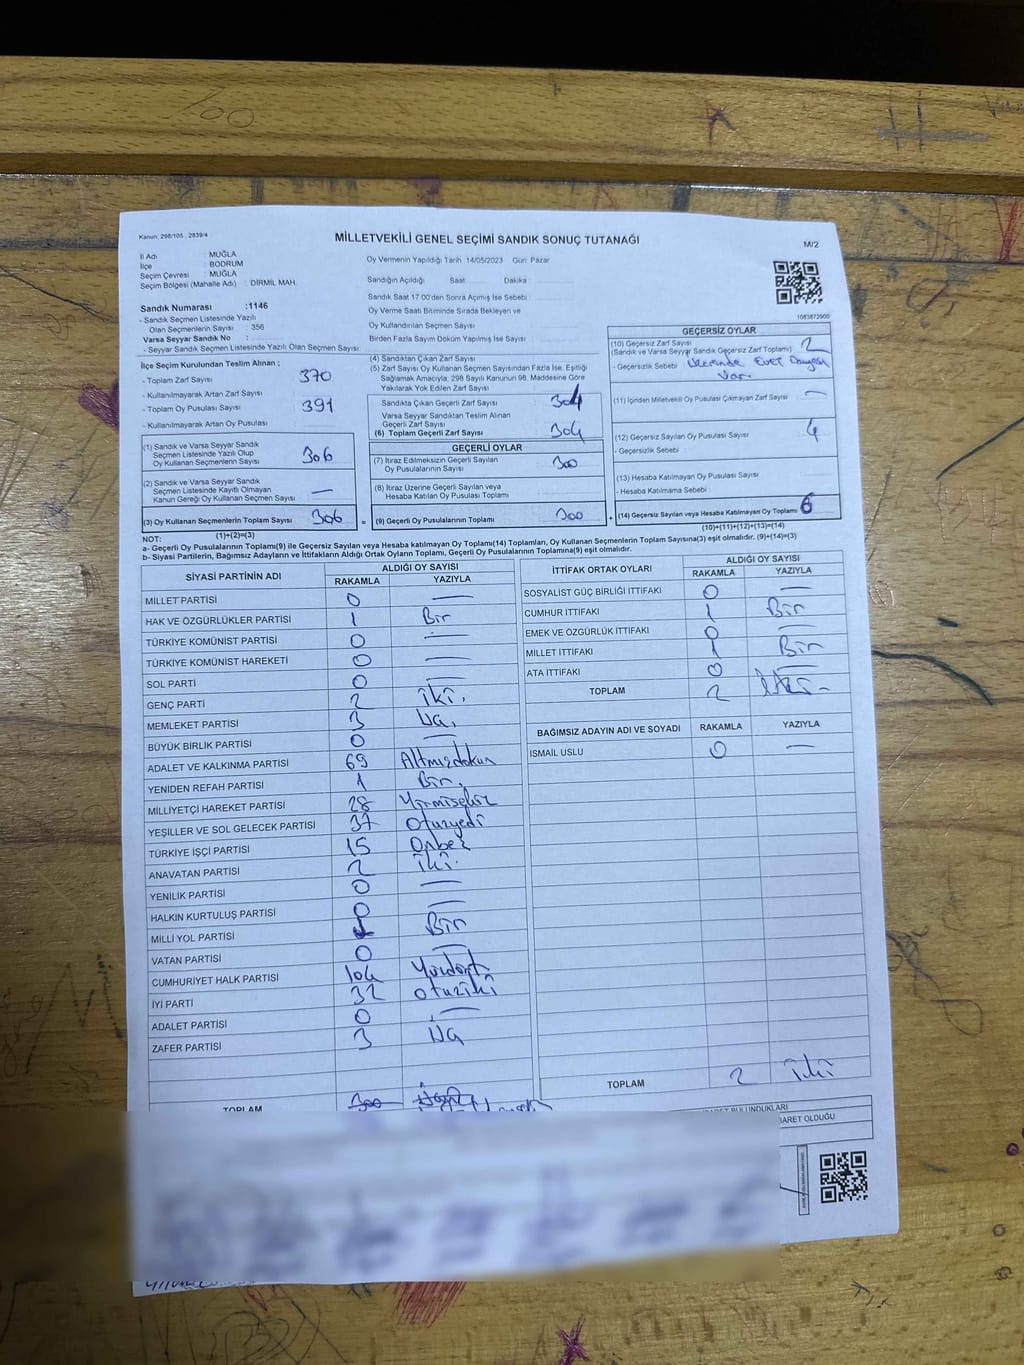 Kanun: 298/105 , 2839/4
MİLLETVEKİLİ GENEL SEÇİMİ SANDIK SONUÇ TUTANAĞI
M/2
İl Adı : MUĞLA
İlçe : BODRUM
Seçim Çevresi : MUĞLA
Seçim Bölgesi (Mahalle Adı) : DIRMIL MAH.
Oy Vermenin Yapıldığı Tarih 14/05/2023 Gün: Pazar
Sandığın Açıldığı Saat Dakika
Sandık Saat 17.00'den Sonra Açılmış İse Sebebi
Oy Verme Saati Bitiminde Sırada Bekleyen ve
Oy Kullandırılan Seçmen Sayısı
Birden Fazla Sayım Döküm Yapılmış İse Sayısı
1083872900
Sandık Numarası :1146
- Sandık Seçmen Listesinde Yazılı
Olan Seçmenlerin Sayısı : 356
Varsa Seyyar Sandık No :
- Seyyar Sandık Seçmen Listesinde Yazılı Olan Seçmen Sayısı:
İlçe Seçim Kurulundan Teslim Alınan ;
- Toplam Zarf Sayısı 370
- Kullanılmayarak Artan Zarf Sayısı
- Toplam Oy Pusulası Sayısı 391
- Kullanılmayarak Artan Oy Pusulası
(1) Sandık ve Varsa Seyyar Sandık
Seçmen Listesinde Yazılı Olup
Oy Kullanan Seçmenlerin Sayısı 306
(2) Sandık ve Varsa Seyyar Sandık
Seçmen Listesinde Kayıtlı Olmayan
Kanun Gereği Oy Kullanan Seçmen Sayısı —
(3) Oy Kullanan Seçmenlerin Toplam Sayısı 306
(1)+(2)=(3)
(4) Sandıktan Çıkan Zarf Sayısı
(5) Zarf Sayısı Oy Kullanan Seçmen Sayısından Fazla İse, Eşitliği
Sağlamak Amacıyla, 298 Sayılı Kanunun 98. Maddesine Göre
Yakılarak Yok Edilen Zarf Sayısı
Sandıkta Çıkan Geçerli Zarf Sayısı 304
Varsa Seyyar Sandıktan Teslim Alınan
Geçerli Zarf Sayısı
(6) Toplam Geçerli Zarf Sayısı 304
GEÇERLİ OYLAR
(7) İtiraz Edilmeksizin Geçerli Sayılan
Oy Pusulalarının Sayısı 300
(8) İtiraz Üzerine Geçerli Sayılan veya
Hesaba Katılan Oy Pusulası Toplamı
= (9) Geçerli Oy Pusulalarının Toplamı 300
GEÇERSİZ OYLAR
(10) Geçersiz Zarf Sayısı
(Sandık ve Varsa Seyyar Sandık Geçersiz Zarf Toplamı) 2
- Geçersizlik Sebebi Üzerinde Evet Damgası
Var.
(11) İçinden Milletvekili Oy Pusulası Çıkmayan Zarf Sayısı —
(12) Geçersiz Sayılan Oy Pusulası Sayısı 4
- Geçersizlik Sebebi
(13) Hesaba Katılmayan Oy Pusulası Sayısı
- Hesaba Katılmama Sebebi
+ (14) Geçersiz Sayılan veya Hesaba Katılmayan Oy Toplamı 6
(10)+(11)+(12)+(13)=(14)
NOT:
a- Geçerli Oy Pusulaları Toplamı(9) ile Geçersiz Sayılan veya Hesaba Katılmayan Oy Toplamı(14) Toplamları, Oy Kullanan Seçmenlerin Toplam Sayısına(3) eşit olmalıdır. (9)+(14)=(3)
b- Siyasi Partilerin, Bağımsız Adayların ve İttifakların Aldığı Ortak Oyların Toplamı, Geçerli Oy Pusulalarının Toplamına(9) eşit olmalıdır.
SİYASİ PARTİNİN ADI ALDIĞI OY SAYISI
RAKAMLA YAZIYLA
MİLLET PARTİSİ 0 —
HAK VE ÖZGÜRLÜKLER PARTİSİ 1 Bir
TÜRKİYE KOMÜNİST PARTİSİ 0 —
TÜRKİYE KOMÜNİST HAREKETİ 0 —
SOL PARTİ 0 —
GENÇ PARTİ 2 iki.
MEMLEKET PARTİSİ 3 Üç.
BÜYÜK BİRLİK PARTİSİ 0 —
ADALET VE KALKINMA PARTİSİ 69 Altmışdokuz
YENİDEN REFAH PARTİSİ 1 Bir.
MİLLİYETÇİ HAREKET PARTİSİ 28 Yirmisekiz
YEŞİLLER VE SOL GELECEK PARTİSİ 37 Otuzyedi
TÜRKİYE İŞÇİ PARTİSİ 15 Onbeş
ANAVATAN PARTİSİ 2 İki.
YENİLİK PARTİSİ 0 —
HALKIN KURTULUŞ PARTİSİ 0 —
MİLLİ YOL PARTİSİ 1 Bir
VATAN PARTİSİ 0 —
CUMHURİYET HALK PARTİSİ 104 Yüzdört
İYİ PARTİ 32 Otuziki
ADALET PARTİSİ 0 —
ZAFER PARTİSİ 3 Üç
TOPLAM 300
İTTİFAK ORTAK OYLARI ALDIĞI OY SAYISI
RAKAMLA YAZIYLA
SOSYALİST GÜÇ BİRLİĞİ İTTİFAKI 0 —
CUMHUR İTTİFAKI 1 Bir
EMEK VE ÖZGÜRLÜK İTTİFAKI 0 —
MİLLET İTTİFAKI 1 Bir
ATA İTTİFAKI 0 —
TOPLAM 2 İki
BAĞIMSIZ ADAYIN ADI VE SOYADI RAKAMLA YAZIYLA
İSMAİL USLU 0 —
TOPLAM 2 İki
BULUNDUKLARI
İBARET OLDUĞU